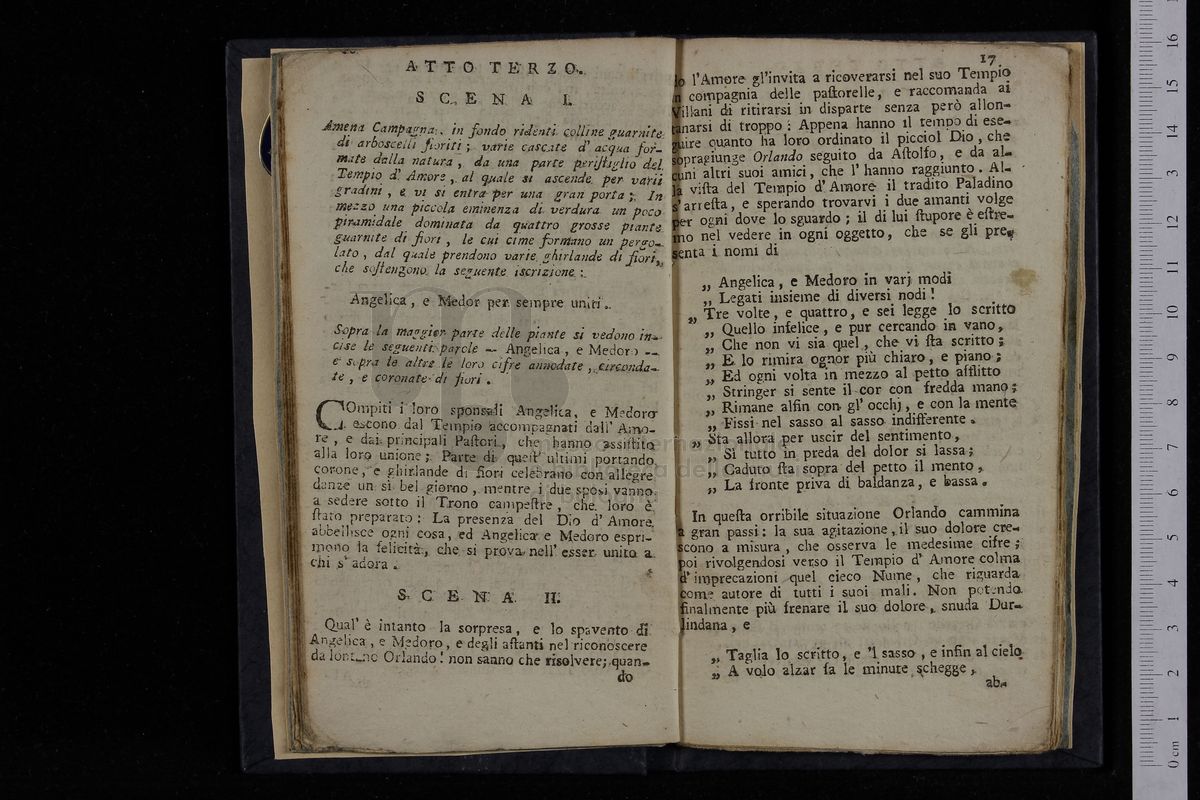 ATTO TERZO.
SCENA I.
Amena Campagna, in fondo ridenti colline guarnite
di arboscelli fioriti; varie cascate d' acqua for-
mate dalla natura, da una parte peristiglio del
Tempio d' Amore, al quale si ascende per varii
gradini, e vi si entra per una gran porta; In
mezzo una piccola eminenza di verdura un poco
piramidale dominata da quattro grosse piante
guarnite di fiori, le cui cime formano un pergo-
lato, dal quale prendono varie ghirlande di fiori,
che sostengono la seguente iscrizione:
Angelica, e Medor per sempre uniti.
Sopra la maggior parte delle piante si vedono in-
cise le seguenti parole -- Angelica, e Medoro --
e sopra le altre le loro cifre annodate, circonda-
te, e coronate di fiori.
COmpiti i loro sponsali Angelica, e Medoro
escono dal Tempio accompagnati dall' Amo-
re, e dai principali Pastori, che hanno assistito
alla loro unione; Parte di quest' ultimi portando
corone, e ghirlande di fiori celebrano con allegre
danze un sì bel giorno, mentre i due sposi vanno
a sedere sotto il Trono campestre, che loro è
stato preparato: La presenza del Dio d' Amore
abbellisce ogni cosa, ed Angelica e Medoro espri-
mono la felicità, che si prova nell' esser unito a
chi s' adora.
SCENA II.
Qual' è intanto la sorpresa, e lo spavento di
Angelica, e Medoro, e degli astanti nel riconoscere
da lontano Orlando! non sanno che risolvere; quan-
do
17
do l'Amore gl'invita a ricoverarsi nel suo Tempio
in compagnia delle pastorelle, e raccomanda ai
Villani di ritirarsi in disparte senza però allon-
tanarsi di troppo: Appena hanno il tempo di ese-
guire quanto ha loro ordinato il picciol Dio, che
sopragiunge Orlando seguito da Astolfo, e da al-
cuni altri suoi amici, che l' hanno raggiunto. Al-
la vista del Tempio d' Amore il tradito Paladino
s' arresta, e sperando trovarvi i due amanti volge
per ogni dove lo sguardo; il di lui stupore è estre-
mo nel vedere in ogni oggetto, che se gli pre-
senta i nomi di
„ Angelica, e Medoro in varj modi
„ Legati insieme di diversi nodi!
„ Tre volte, e quattro, e sei legge lo scritto
„ Quello infelice, e pur cercando in vano,
„ Che non vi sia quel, che vi sta scritto;
„ E lo rimira ognor più chiaro, e piano;
„ Ed ogni volta in mezzo al petto afflitto
„ Stringer si sente il cor con fredda mano;
„ Rimane alfin con gl' occhj, e con la mente
„ Fissi nel sasso al sasso indifferente.
„ Sta allora per uscir del sentimento,
„ Sì tutto in preda del dolor si lassa;
„ Caduto sta sopra del petto il mento,
„ La fronte priva di baldanza, e bassa.
In questa orribile situazione Orlando cammina
a gran passi: la sua agitazione, il suo dolore cre-
scono a misura, che osserva le medesime cifre;
poi rivolgendosi verso il Tempio d' Amore colma
d' imprecazioni quel cieco Nume, che riguarda
come autore di tutti i suoi mali. Non potendo
finalmente più frenare il suo dolore, snuda Dur-
lindana, e
„ Taglia lo scritto, e 'l sasso, e infin al cielo
„ A volo alzar fa le minute schegge,
ab-
0 cm 1 2 3 4 5 6 7 8 9 10 11 12 13 14 15 16